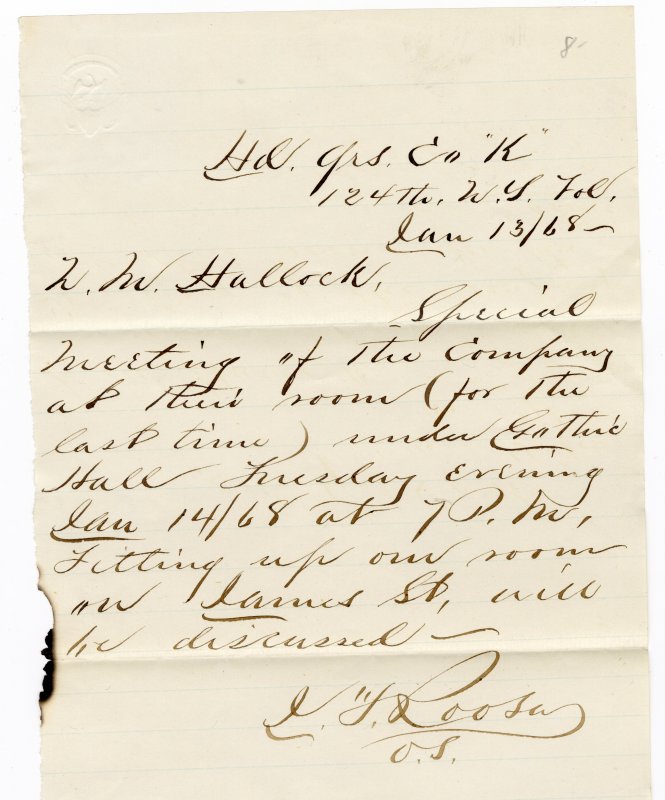 8-
Hd. Qrs. Co "K"
124th. N.Y. Vol.
Jan 13/68-
N. M. Hallock,
Special
Meeting of the Company
at their room (for the
last time) under Gothic
Hall Tuesday evening
Jan 14/68 at 7 P.M,
Fitting up our room
on James St, will
be discussed -
Roosa
O.S.